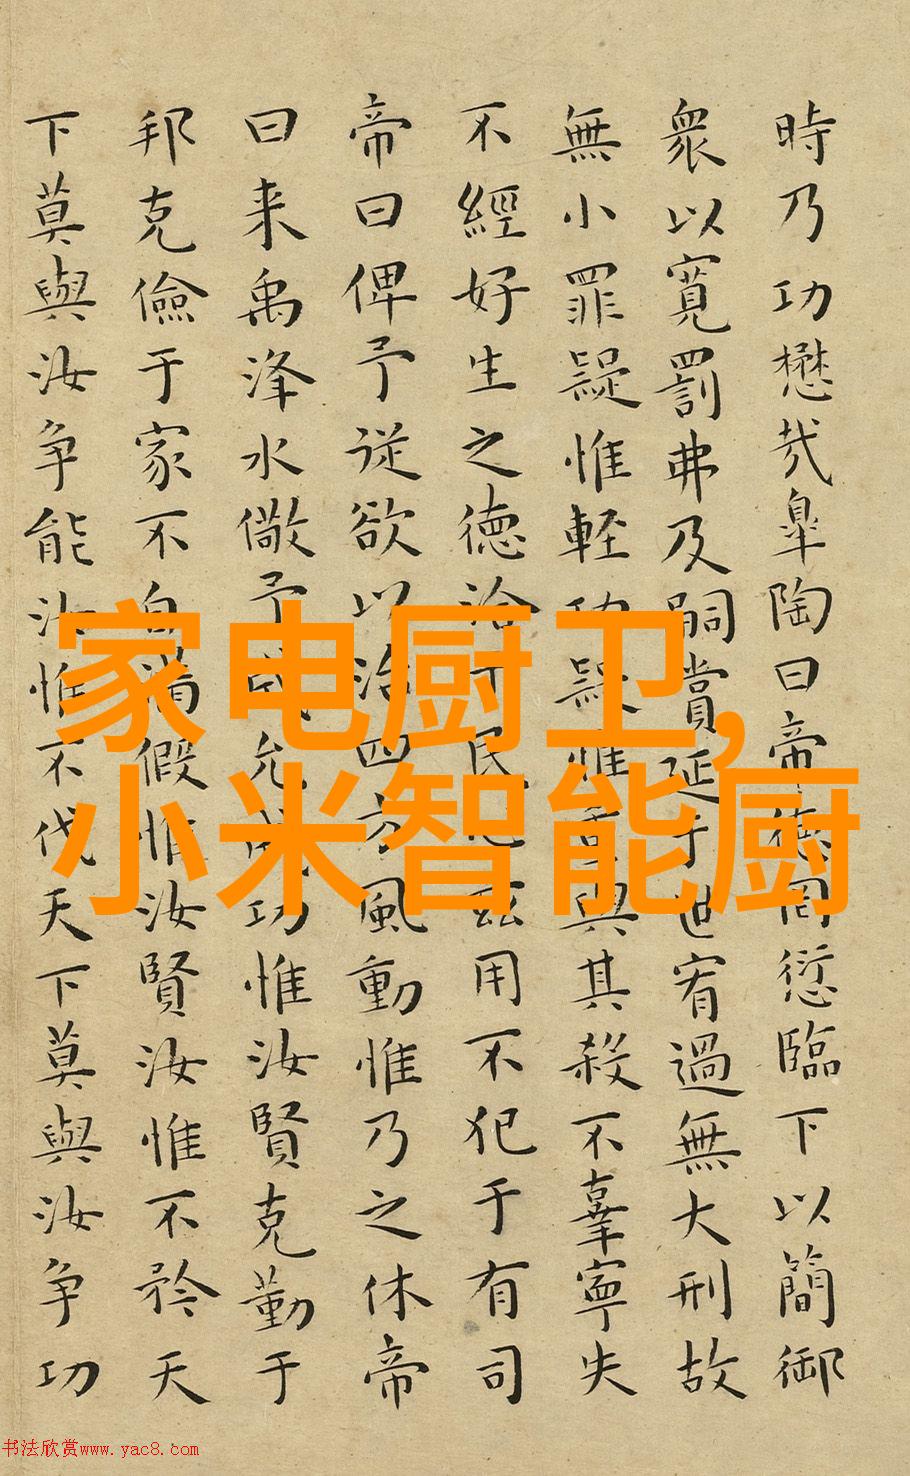 時乃功懋哉皐陶曰帝德罔愆臨下以簡御
衆以寬罰弗及嗣賞延于世宥過無大刑故
無小罪疑惟輕功疑惟重與其殺不辜寧失
不經好生之德洽于民心茲用不犯于有司
帝曰俾予從欲以治四方風動惟乃之休帝
曰来禹洚水儆予成允成功惟汝賢克勤于
邦克儉于家不自滿假惟汝賢汝惟不矜天
下莫與汝争能汝惟不伐天下莫與汝争功
家电厨卫,
小米智能厨
书法欣赏www.yac8.com